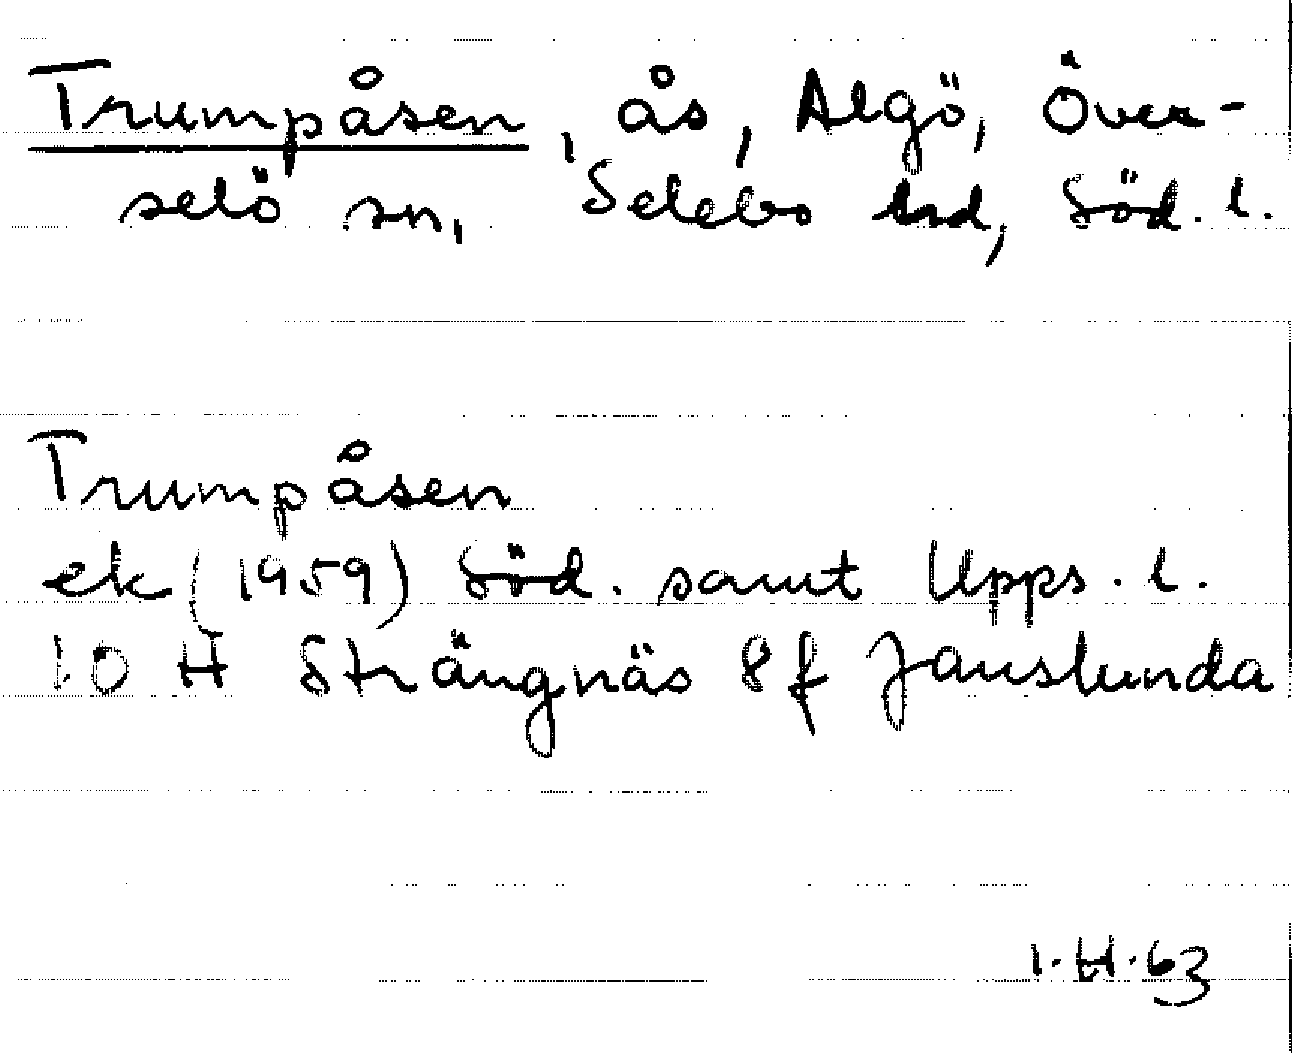 Trumpåsen, ås, Algö, Över-
selö sn, Selebo hd, Söd. l.
Trumpåsen
ek (1959) Söd. samt Upps. l.
10 H Strängnäs 8 f Janslunda
1.H.63